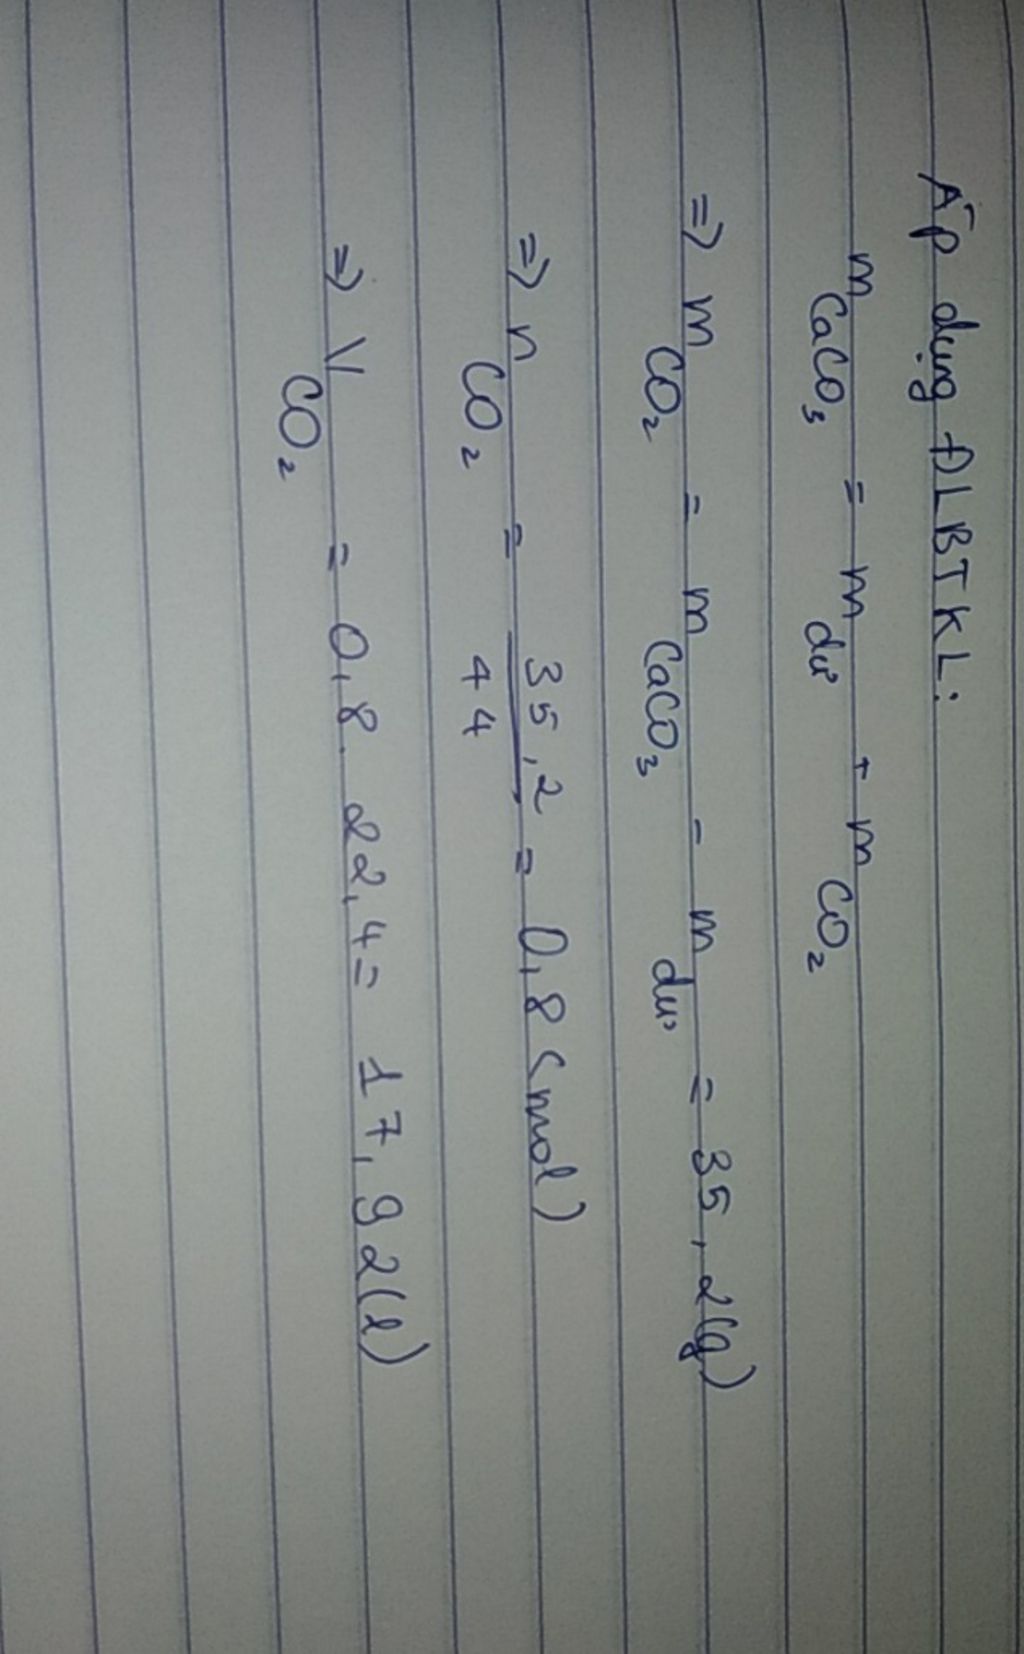 Áp dụng ĐLBTKL:
m CaCO₃ = m dư + m CO₂
=> m CO₂ = m CaCO₃ - m dư = 35,2(g)
=> n CO₂ = 35,2/44 = 0,8 (mol)
=> V CO₂ = 0,8. 22,4 = 17,92(l)